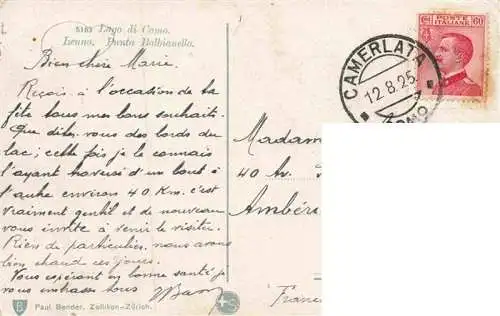 5163 Lago di Como.
Lenno. Punta Balbianello.
Bien chère Marie.
Reçois à l'occasion de ta
fête tous mes bons souhaits.
Que dites-vous des bords du
lac; cette fois je le connais
l'ayant traversé d'un bout à
l'autre environ 40 Km. c'est
vraiment gentil et de nouveau
vous invite à venir le visiter.
Rien de particulier, nous avons
bien chaud ces jours.
Vous espérant en bonne santé, je
vous embrasse tous
Paul Bender, Zollikon-Zürich.
CENT. POSTE 60
ITALIANE
CAMERLATA
12.8.25
COMO
Madam
40 Av.
Ambéri
Franc